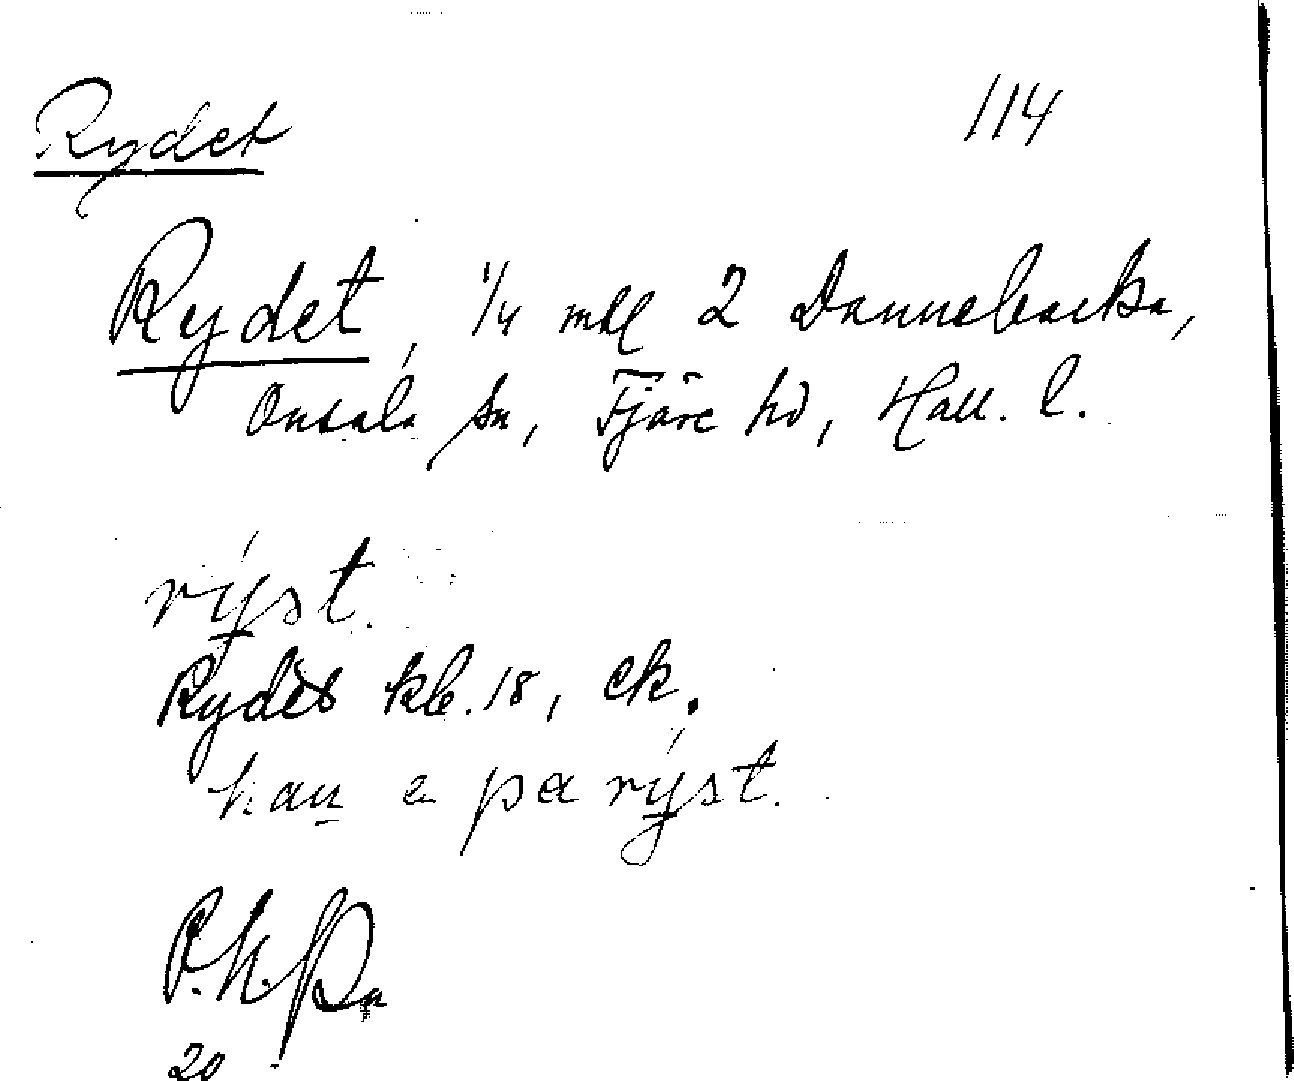 Rydet 114
Rydet, 1/4 mtl 2 Dannebacka,
Onsala sn, Fjäre hd, Hall. l.
rýst.
Rydet kb. 18, ek.
han a pa rýst.
20